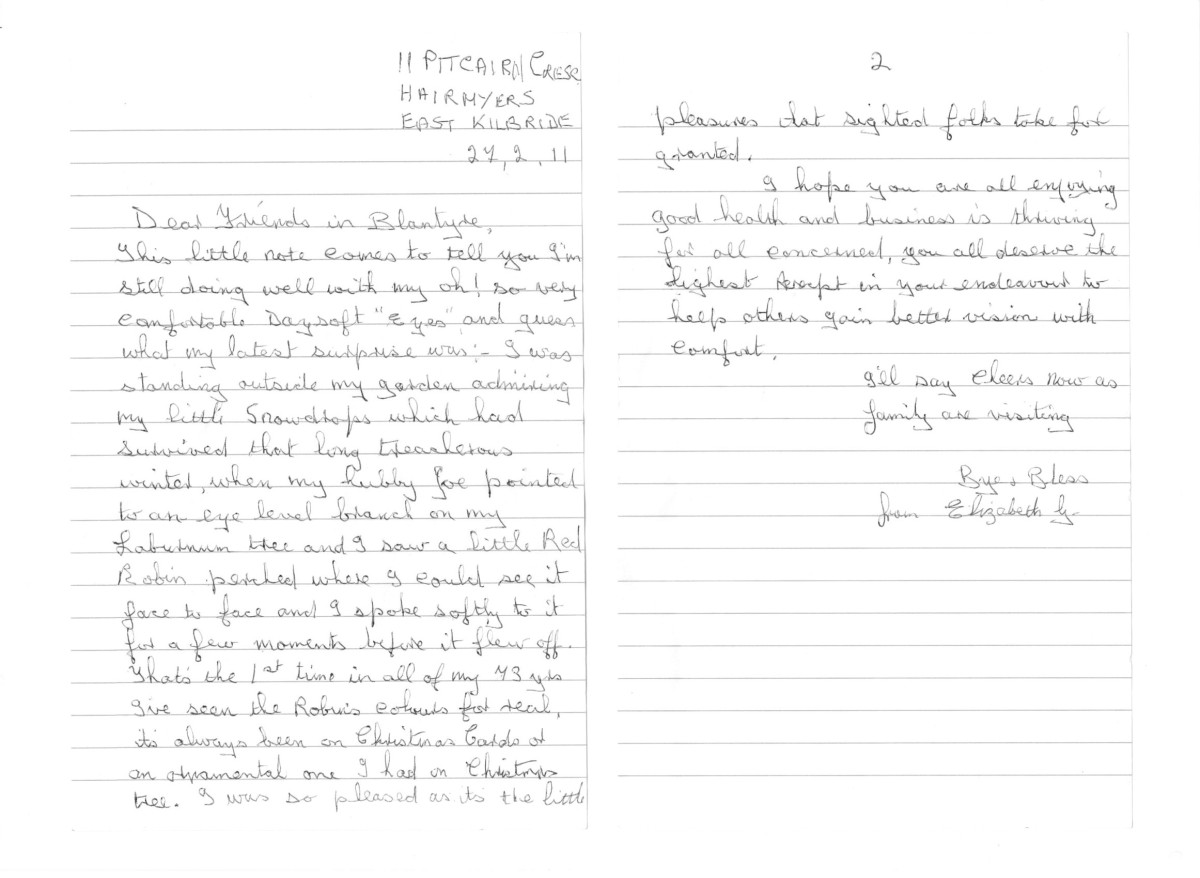 11 PITCAIRN CRESC
HAIRMYERS
EAST KILBRIDE
27, 2, 11
Dear Friends in Blantyre,
This little note comes to tell you I'm
still doing well with my oh! so very
comfortable Daysoft "Eyes" and guess
what my latest surprise was:- I was
standing outside my garden admiring
my little Snowdrops which had
survived that long treacherous
winter, when my hubby Joe pointed
to an eye level branch on my
Laburnum tree and I saw a little Red
Robin perched where I could see it
face to face and I spoke softly to it
for a few moments before it flew off.
Thats the 1st time in all of my 73 yrs
I've seen the Robins colours for real,
its always been on Christmas Cards or
an ornamental one I had on Christmas
tree. I was so pleased as its the little
2
pleasures that sighted folks take for
granted.
I hope you are all enjoying
good health and business is thriving
for all concerned, you all deserve the
highest in your endeavour to
help others gain better vision with
comfort.
I'll say Cheers now as
family are visiting
Bye & Bless
from Elizabeth G.